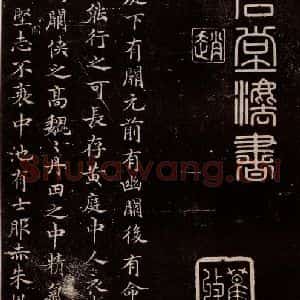 堂灋書
趙
庭下有關元前有幽關後有命
能行之可長存黃庭中人衣
關侯之高巍巍丹田之中精氣
堅志不衰中池有士服赤朱
Shufawang.cn